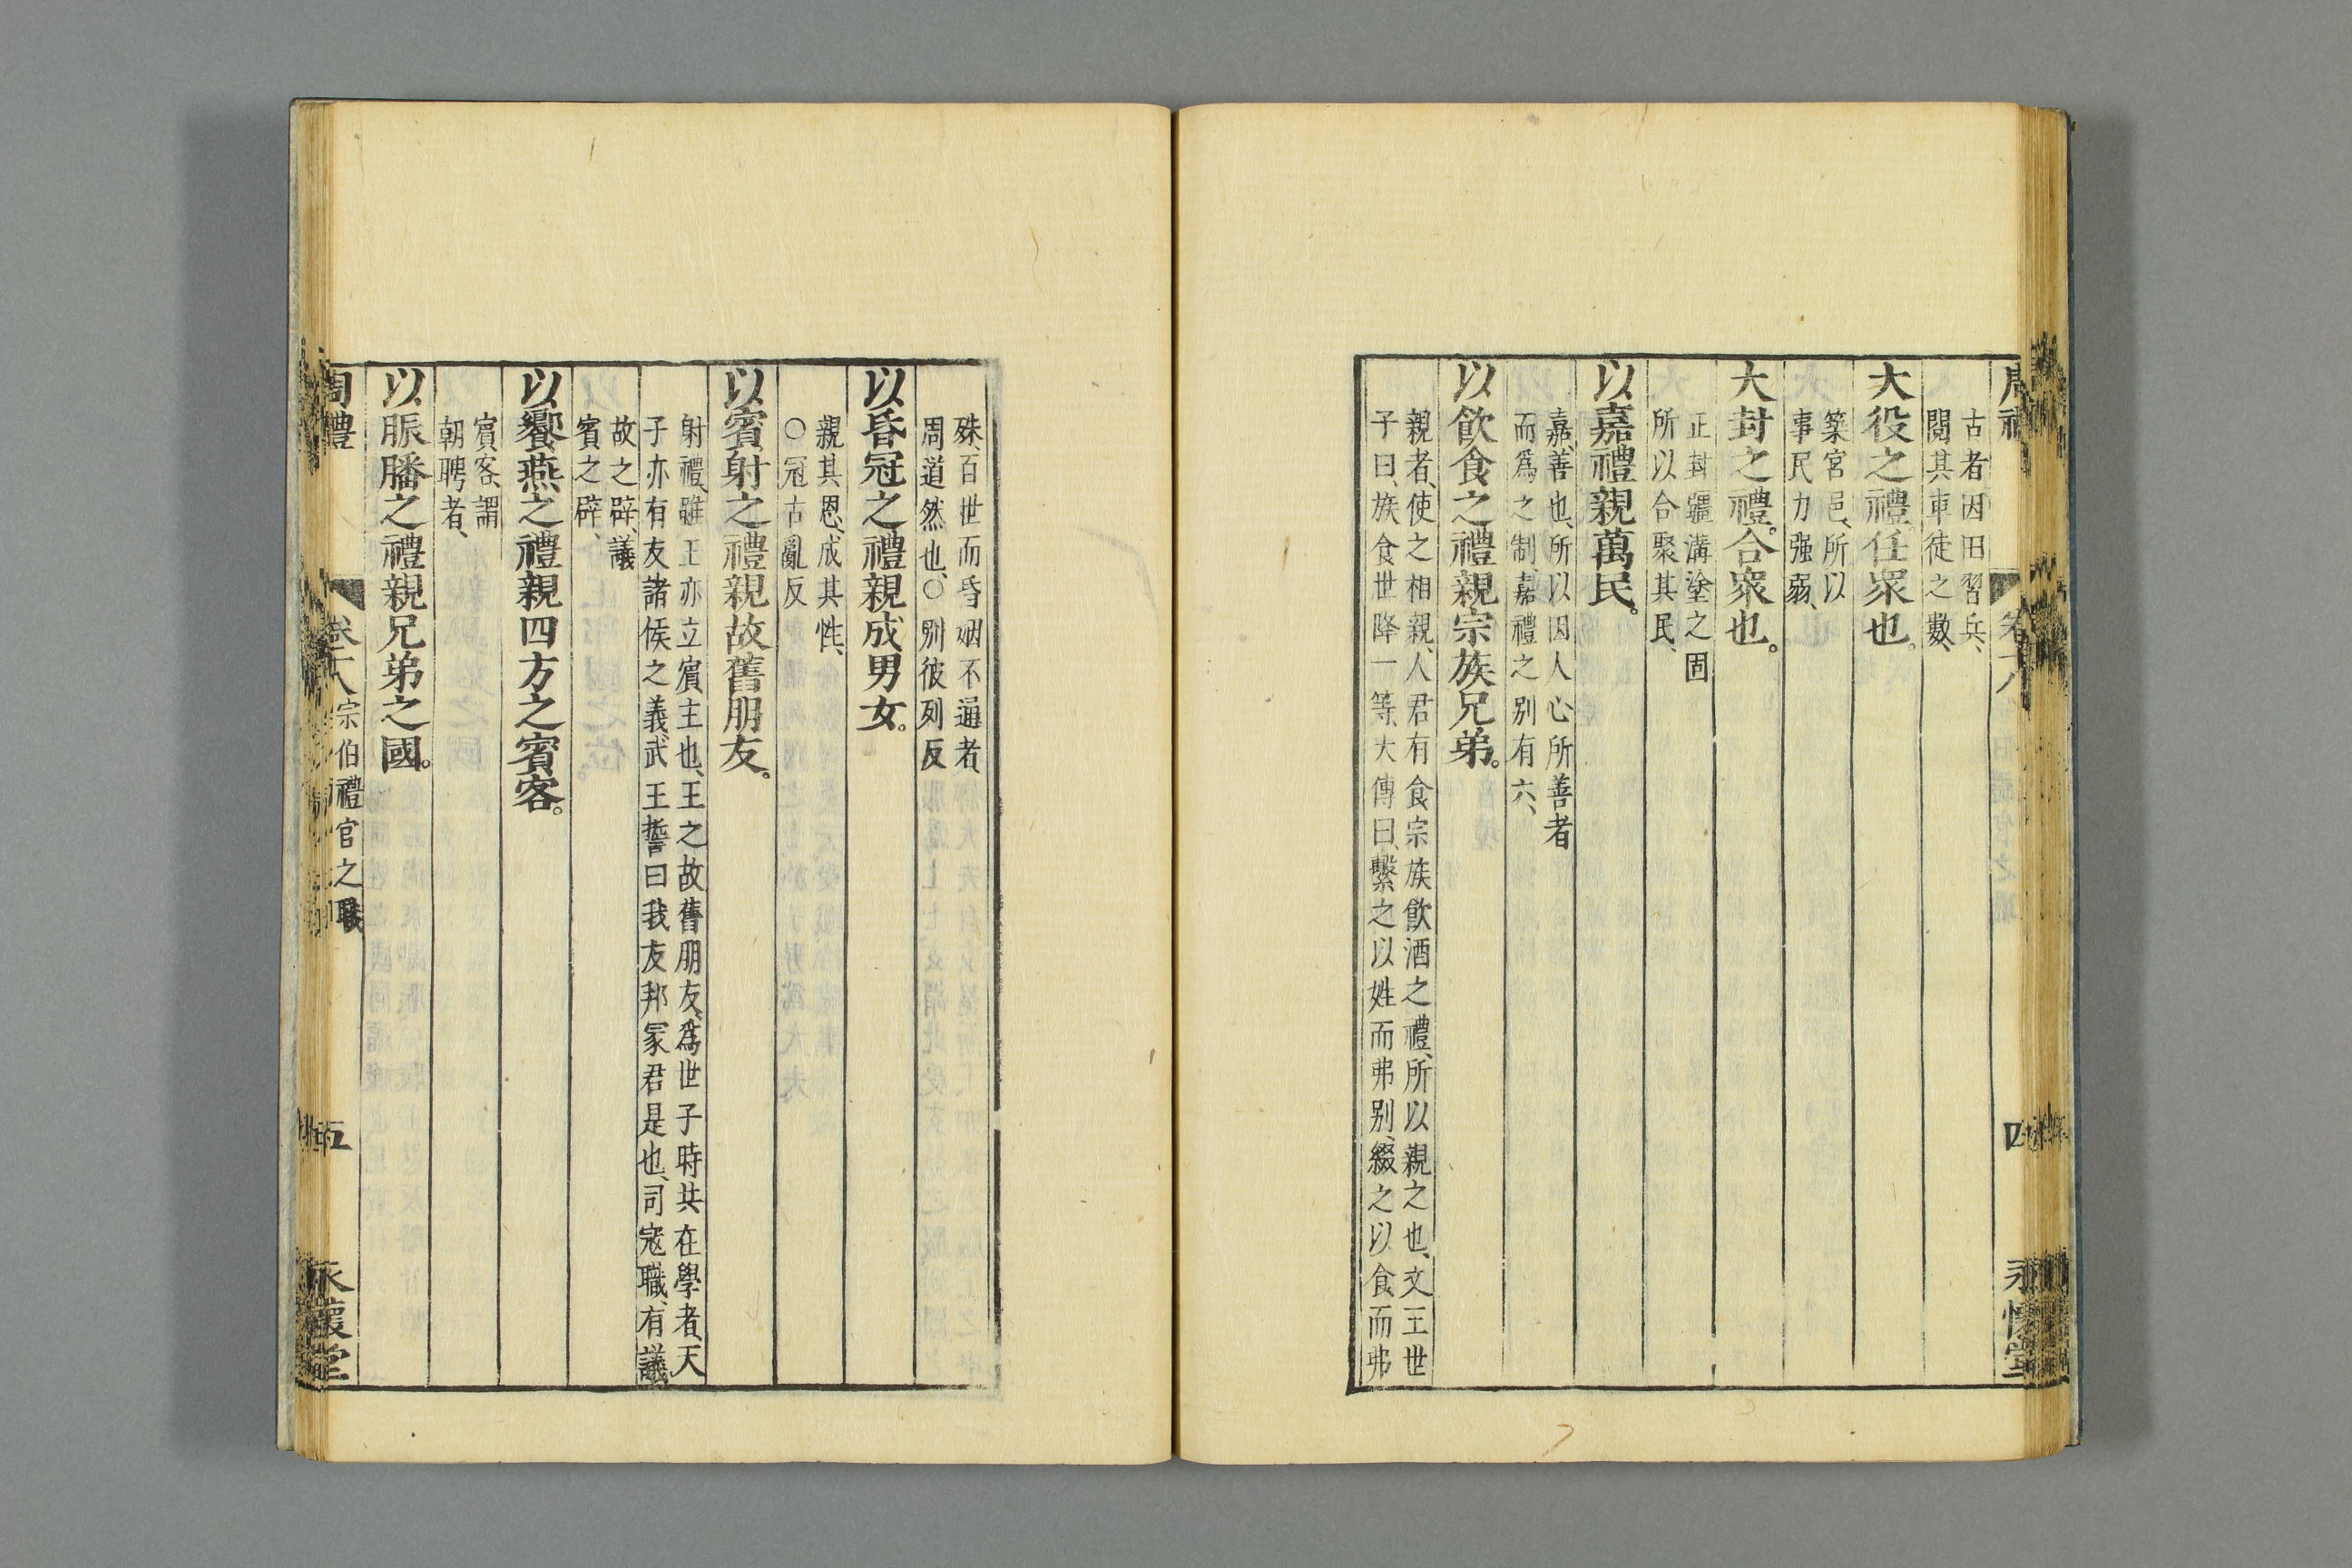 古者因田習兵、
閱其車徒之數、
大役之禮。任眾也。
築宮邑、所以
事民力强弱、
大封之禮。合眾也。
正封疆溝塗之固
所以合聚其民、
以嘉禮親萬民。
嘉、善也、所以因人心所善者
而爲之制、嘉禮之别有六、
以飲食之禮親宗族兄弟。
親者、使之相親、人君有食宗族飲酒之禮、所以親之也、文王世
子曰、族食世降一等、大傳曰、繫之以姓而弗别、綴之以食而弗
四
永懷堂
殊、百世而昏姻不通者、
周道然也、○别彼列反
以昏冠之禮親成男女。
親其恩、成其性、
○冠古亂反
以賓射之禮親故舊朋友。
射禮、雖王亦立賓主也、王之故舊朋友、爲世子時共在學者、天
子亦有友諸侯之義武王誓曰我友邦冢君是也、司寇職、有議
故之辟、議
賓之辟、
以饗燕之禮親四方之賓客。
賓客、謂
朝聘者、
以脤膰之禮親兄弟之國。
周禮
宗伯禮官之職
五
永懷堂